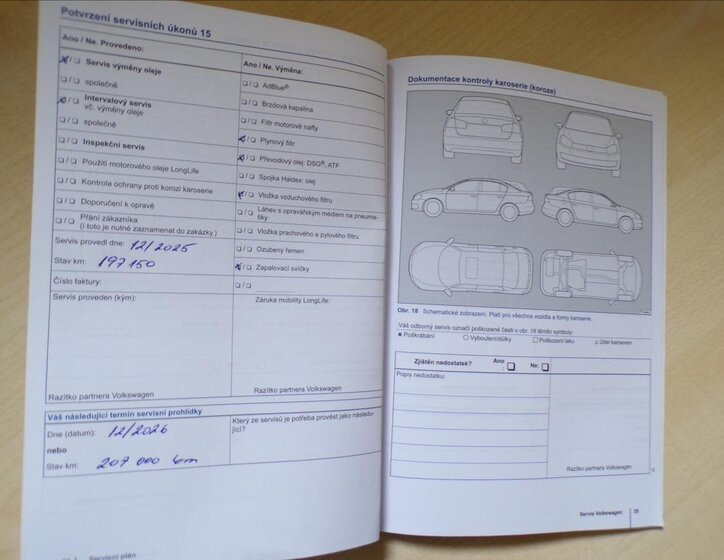 Potvrzení servisních úkonů 15
Ano / Ne. Provedeno:
Servis výměny oleje
společně
Intervalový servis
vč. výměny oleje
společně
Inspekční servis
Použití motorového oleje LongLife
Kontrola ochrany proti korozi karoserie
Doporučení k opravě
Přání zákazníka
(i toto je nutné zaznamenat do zakázky.)
Servis provedl dne: 12/2025
Stav km: 197 150
Číslo faktury:
Servis proveden (kým):
Razítko partnera Volkswagen
Ano / Ne. Výměna:
AdBlue®
Brzdová kapalina
Filtr motorové nafty
Plynový filtr
Převodový olej: DSG®, ATF
Spojka Haldex: olej
Vložka vzduchového filtru
Láhev s opravářským médiem na pneuma-
tiky
Vložka prachového a pylového filtru
Ozubený řemen
Zapalovací svíčky
Záruka mobility LongLife:
Razítko partnera Volkswagen
Váš následující termín servisní prohlídky
Dne (datum): 12/2026
nebo
Stav km: 207 000 km
Který ze servisů je potřeba provést jako následu-
jící?
Servisní plán
Dokumentace kontroly karoserie (koroze)
Obr. 18 Schematické zobrazení. Platí pro všechna vozidla a formy karoserie.
Váš odborný servis označí poškozené části v obr. 18 těmito symboly:
× Poškrábání
○ Vyboulení/důlky
□ Poškození laku
△ Úder kamenem
Zjištěn nedostatek?
Ano
:
Ne:
Popis nedostatku:
Razítko partnera Volkswagen
Servis Volkswagen
35